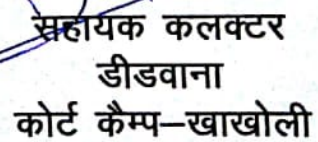 सहायक कलक्टर
डीडवाना
कोर्ट कैम्प–खाखोली